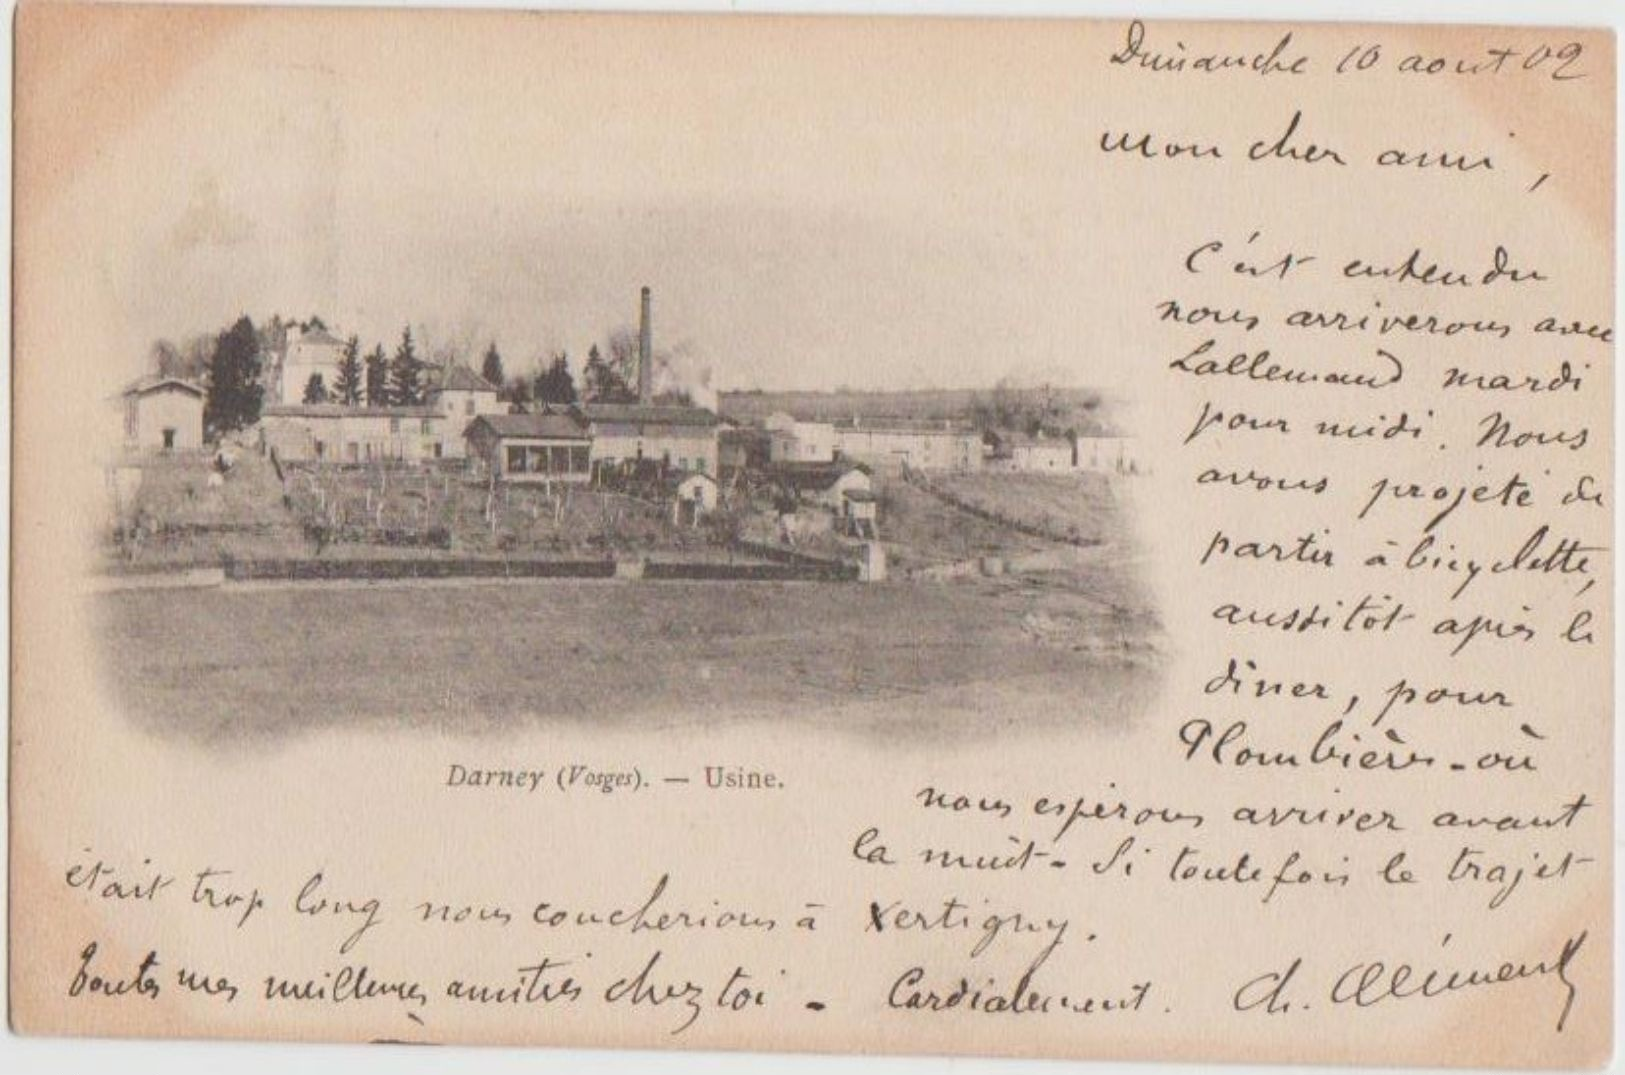 Dimanche 10 aout 02
mon cher ami,
C'est entendu
nous arriverons avec
Lallemand mardi
pour midi. Nous
avons projeté de
partir à bicyclette,
aussitôt après le
dîner, pour
Plombières - où
nous espérons arriver avant
la nuit - Si toutefois le trajet
était trop long nous coucherions à Xertigny.
Toutes mes meilleures amitiés chez toi - Cordialement. Ch. Clément
Darney (Vosges). — Usine.